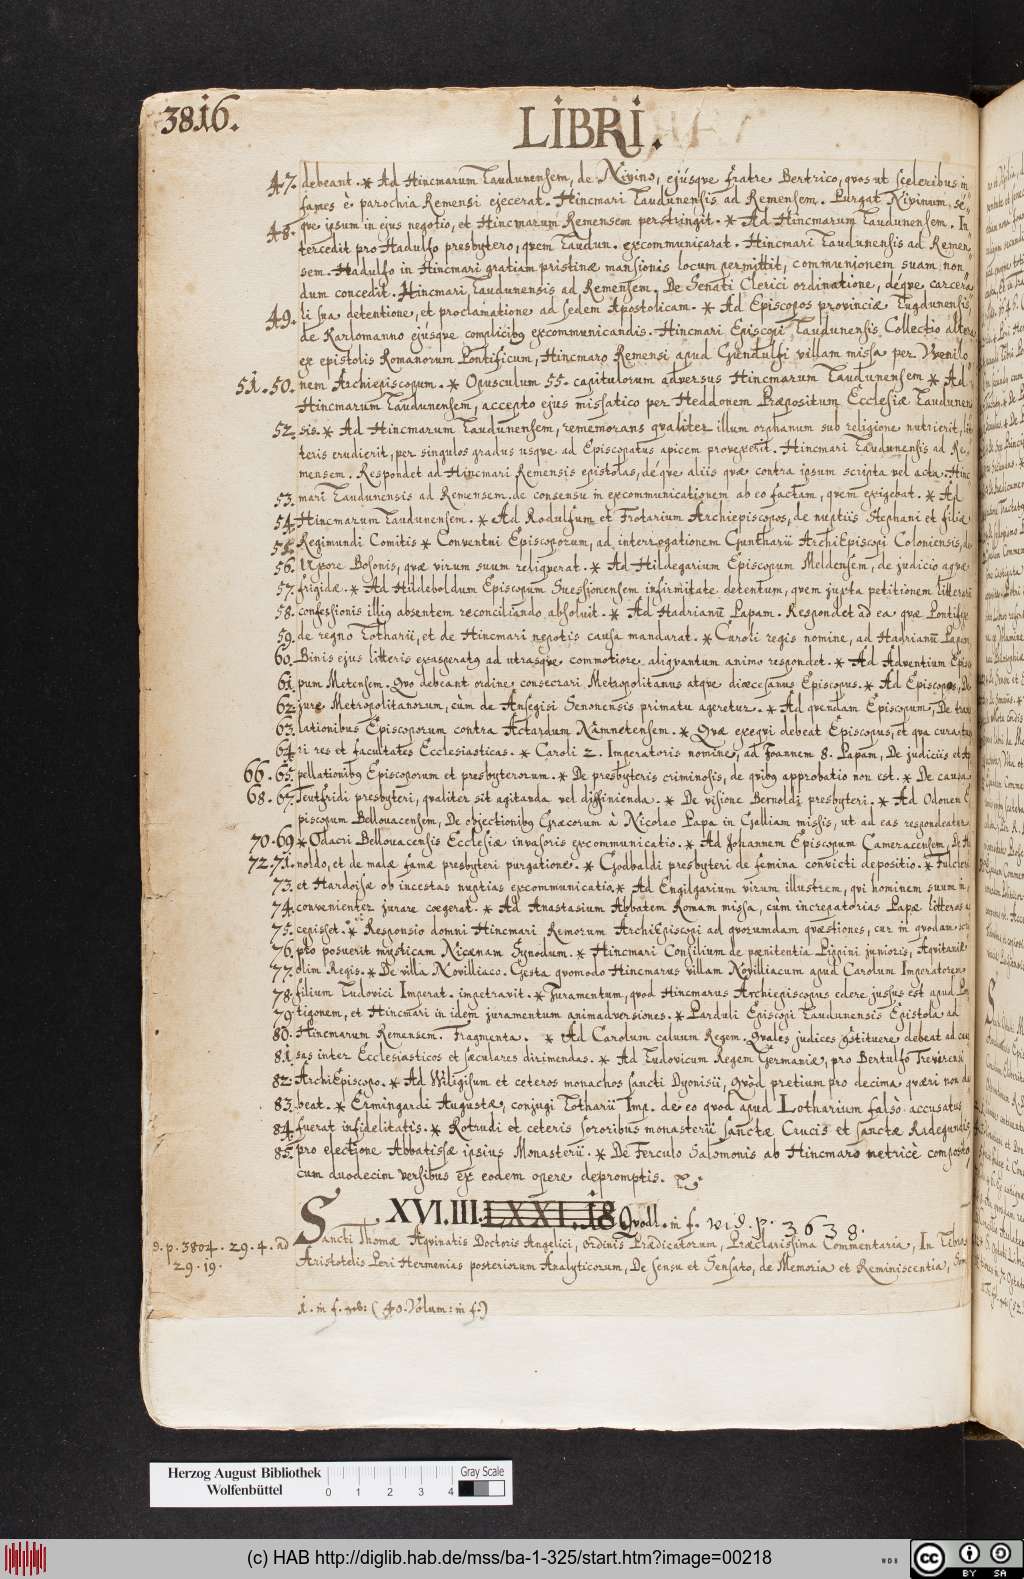 3816.
LIBRI.
47. debeant. * Ad Hincmarum Laudunensem, de Nivino, ejusque fratre Bertrico, quos ut sceleribus in
fames è parochia Remensi ejecerat. Hincmari Laudunensis ad Remensem. Purgat Nivinum, se
48. que ipsum in ejus negotio, et Hincmarum Remensem perstringit. * Ad Hincmarum Laudunensem. In
tercedit pro Hadulfo presbytero, quem Laudun. excommunicarat. Hincmari Laudunensis ad Remen
sem. Hadulfo in Hincmari gratiam pristinæ mansionis locum permittit, communionem suam non
dum concedit. Hincmari Laudunensis ad Remensem. De Senati Clerici ordinatione, déque carcera
49. li sua detentione, et proclamatione ad sedem Apostolicam. * Ad Episcopos provinciæ Lugdunensis
de Karlomanno ejúsque complicibus excommunicandis. Hincmari Episcopi Laudunensis Collectio altera
ex epistolis Romanorum Pontificum, Hincmaro Remensi apud Gundulfi villam missa per Wenilo
51. 50. nem Archiepiscopum. * Opusculum 55. capitulorum adversus Hincmarum Laudunensem * Ad
Hincmarum Laudunensem, accepto ejus missatico per Heddonem Præpositum Ecclesiæ Laudunen
52. sis. * Ad Hincmarum Laudunensem, rememorans qualiter illum orphanum sub religione nutrierit, lit
teris erudierit, per singulos gradus usque ad Episcopatus apicem provexerit. Hincmari Laudunensis ad Re
mensem. Respondet ad Hincmari Remensis epistolas, déque aliis quæ contra ipsum scripta vel acta. Hinc
53. mari Laudunensis ad Remensem de consensu in excommunicationem ab eo factam, quem exigebat. * Ad
54. Hincmarum Laudunensem. * Ad Rodulfum et Frotarium Archiepiscopos, de nuptiis Stephani et filiæ
55. Regimundi Comitis * Conventui Episcoporum, ad interrogationem Guntharii ArchiEpiscopi Coloniensis, de
56. Uxore Bosonis, quæ virum suum reliquerat. * Ad Hildegarium Episcopum Meldensem, de judicio aquæ
57. frigidæ. * Ad Hildeboldum Episcopum Suessionensem infirmitate detentum, quem juxta petitionem litteris
58. confessionis illius absentem reconciliando absoluit. * Ad Hadrianum Papam. Respondet ad ea quæ Pontifex
59. de regno Lotharii, et de Hincmari nepotis causa mandarat. * Caroli regis nomine, ad Hadrianum Papam
60. Binis ejus litteris exasperatus ad utrasque commotiore aliquantum animo respondet. * Ad Adventium Epis
61. pum Metensem. Quo debeant ordine consecrari Metropolitanus atque diœcesanus Episcopus. * Ad Episcopos, De
62. jure Metropolitanorum, cùm de Ansegisi Senonensis primatu ageretur. * Ad quendam Episcopum, De trans
63. lationibus Episcoporum contra Actardum Namnetensem. * Quæ exequi debeat Episcopus, et qua cura tue
64. ri res et facultates Ecclesiasticas. * Caroli 2. Imperatoris nomine, ad Joannem 8. Papam, De judiciis et ap
66. 65. pellationibus Episcoporum et presbyterorum. * De presbyteris criminosis, de quibus approbatio non est. * De causa
68. 67. Teutfridi presbyteri, qualiter sit agitanda vel diffinienda. * De visione Bernoldi presbyteri. * Ad Odonem E
piscopum Bellouacensem, De objectionibus Græcorum à Nicolao Papa in Galliam missis, ut ad eas respondeatur
70. 69 * Odacri Bellouacensis Ecclesiæ invasoris excommunicatio. * Ad Johannem Episcopum Cameracensem, De Hu
72. 71. noldo, et de malæ famæ presbyteri purgatione. * Godbaldi presbyteri de femina convicti depositio. * Fulcrici
73. et Hardoisæ ob incestas nuptias excommunicatio. * Ad Engilgarium virum illustrem, qui hominem suum in
74. convenienter jurare coegerat. * Ad Anastasium Abbatem Romam missa, cùm increpatorias Papæ litteras ac
75. cepisset. * Responsio domni Hincmari Remorum ArchiEpiscopi ad quorumdam quæstiones, cur in quodam scri
76. pto posuerit mysticam Nicænam Synodum. * Hincmari Consilium de pœnitentia Pippini junioris, Aquitaniæ
77. olim Regis. * De villa Novilliaco. Gesta quomodo Hincmarus villam Novilliacum apud Carolum Imperatorem
78. filium Ludovici Imperat. impetravit. * Juramentum, quod Hincmarus Archiepiscopus edere jussus est apud Pon
79. tigonem, et Hincmari in idem juramentum animadversiones. * Parduli Episcopi Laudunensis Epistola ad
80. Hincmarum Remensem. Fragmenta. * Ad Carolum caluum Regem. Quales judices constituere debeat ad cau
81. sas inter Ecclesiasticos et sæculares dirimendas. * Ad Ludovicum Regem Germaniæ, pro Bertulfo Treverensi
82. ArchiEpiscopo. * Ad Wiligisum et ceteros monachos sancti Dyonisii, Quòd pretium pro decima quæri non de
83. beat. * Ermingardi Augustæ, conjugi Lotharii Imp. de eo quod apud Lotharium falsò accusatus
84. fuerat infidelitatis. * Rotrudi et ceteris sororibus monasterii sanctæ Crucis et sanctæ Radegundis
85. pro electione Abbatissæ ipsius Monasterii. * De Ferculo Salomonis ab Hincmaro metricè composito
cum duodecim versibus ex eodem opere depromptis.
XVI. III. LXXI. 18 Quodl. in f. vid. p. 3638.
Sancti Thomæ Aqvinatis Doctoris Angelici, Ordinis Prædicatorum, Præclarissima Commentaria, In Libros
Aristotelis Peri Hermenias posteriorum Analyticorum, De Sensu et Sensato, de Memoria et Reminiscentia, Som
v. p. 3804. 29. 4. ad
29. 19.
1. in f. (40. Volum: in f.)
Herzog August Bibliothek
Wolfenbüttel
0 1 2 3 4
Gray Scale
(c) HAB http://diglib.hab.de/mss/ba-1-325/start.htm?image=00218
WDB
cc BY SA